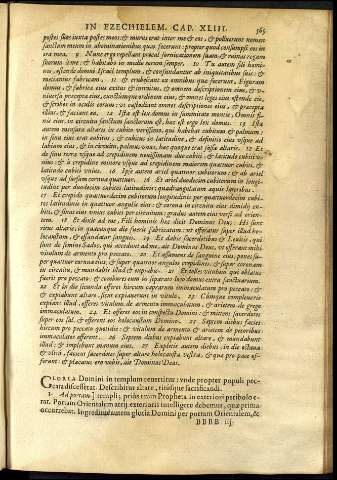 IN EZECHIELEM. CAP. XLIII. 565
postes suos iuxta postes meos: & murus erat inter me & eos, & polluerunt nomen
sanctum meum in abominationibus quas fecerunt: propter quod consumpsi eos in
ira mea. 9 Nunc ergo repellant procul fornicationem suam, & ruinas regum
suorum à me: & habitabo in medio eorum semper. 10 Tu autem fili homi-
nis, ostende domui Israel templum, & confundantur ab iniquitatibus suis: &
metiantur fabricam, 11 & erubescant ex omnibus quæ fecerunt. Figuram
domus, & fabricæ eius exitus & introitus, & omnem descriptionem eius, & v-
niuersa præcepta eius, cunctumque ordinem eius, & omnes leges eius ostende eis,
& scribes in oculis eorum: vt custodiant omnes descriptiones eius, & præcepta
illius, & faciant ea. 12 Ista est lex domus in summitate montis, Omnis fi-
nis eius in circuitu sanctum sanctorum est, hæc est ergo lex domus. 13 Istæ
autem mensuræ altaris in cubito verissimo, qui habebat cubitum & palmum:
in sinu eius erat cubitus, & cubitus in latitudine, & definitio eius vsque ad
labium eius, & in circuitu, palmus vnus, hæc quoque erat fossa altaris. 14 Et
de sinu terræ vsque ad crepidinem nouissimam duo cubiti, & latitudo cubiti v-
nius: & à crepidine minore vsque ad crepidinem maiorem quatuor cubiti, &
latitudo cubiti vnius. 15 Ipse autem ariel quatuor cubitorum: & ab ariel
vsque ad sursum cornua quatuor. 16 Et ariel duodecim cubitorum in longi-
tudine per duodecim cubitos latitudinis: quadrangulatum æquis lateribus.
17 Et crepido quatuordecim cubitorum longitudinis per quatuordecim cubi-
tos latitudinis in quatuor angulis eius: & corona in circuitu eius dimidij cu-
biti, & sinus eius vnius cubiti per circuitum: gradus autem eius versi ad orien-
tem. 18 Et dixit ad me, Fili hominis hæc dicit Dominus Deus: Hi sunt
ritus altaris in quacunque die fuerit fabricatum: vt offeratur super illud ho-
locaustum, & effundatur sanguis. 19 Et dabis sacerdotibus & Leuitis, qui
sunt de semine Sadoc, qui accedunt ad me, ait Dominus Deus, vt offerant mihi
vitulum de armento pro peccato. 20 Et assumens de sanguine eius, pones su-
per quatuor cornua eius, & super quatuor angulos crepidinis, & super coronam
in circuitu, & mundabis illud & expiabis. 21 Et tolles vitulum qui oblatus
fuerit pro peccato: & combures eum in separato loco domus extra sanctuarium.
22 Et in die secunda offeres hircum caprarum immaculatum pro peccato: &
& expiabunt altare, sicut expiauerunt in vitulo. 23 Cùmque compleueris
expians illud, offeres vitulum de armento immaculatum, & arietem de grege
immaculatum. 24 Et offeres eos in conspectu Domini: & mittent sacerdotes
super eos sal, & offerent eos holocaustum Domino. 25 Septem diebus facies
hircum pro peccato quotidie: & vitulum de armento & arietem de pecoribus
immaculatos offerent. 26 Septem diebus expiabunt altare, & mundabunt
illud, & implebunt manum eius. 27 Expletis autem diebus: in die octaua
& vltrà, facient sacerdotes super altare holocausta vestra, & quæ pro pace of-
ferunt: & placatus ero vobis, ait Dominus Deus.
GLORIA Domini in templum reuertitur: vnde propter populi pec-
cata discesserat. Describitur altare, ritusque sacrificandi.
1. Ad portam] templi; prius enim Propheta in exteriori patibolo e-
rat. Portam Orientalem atrij exterioris intelligere debemus, quæ prima
occurrebat. Ingrediundatem gloria Domini per portam Orientalem, &
BBBB iij